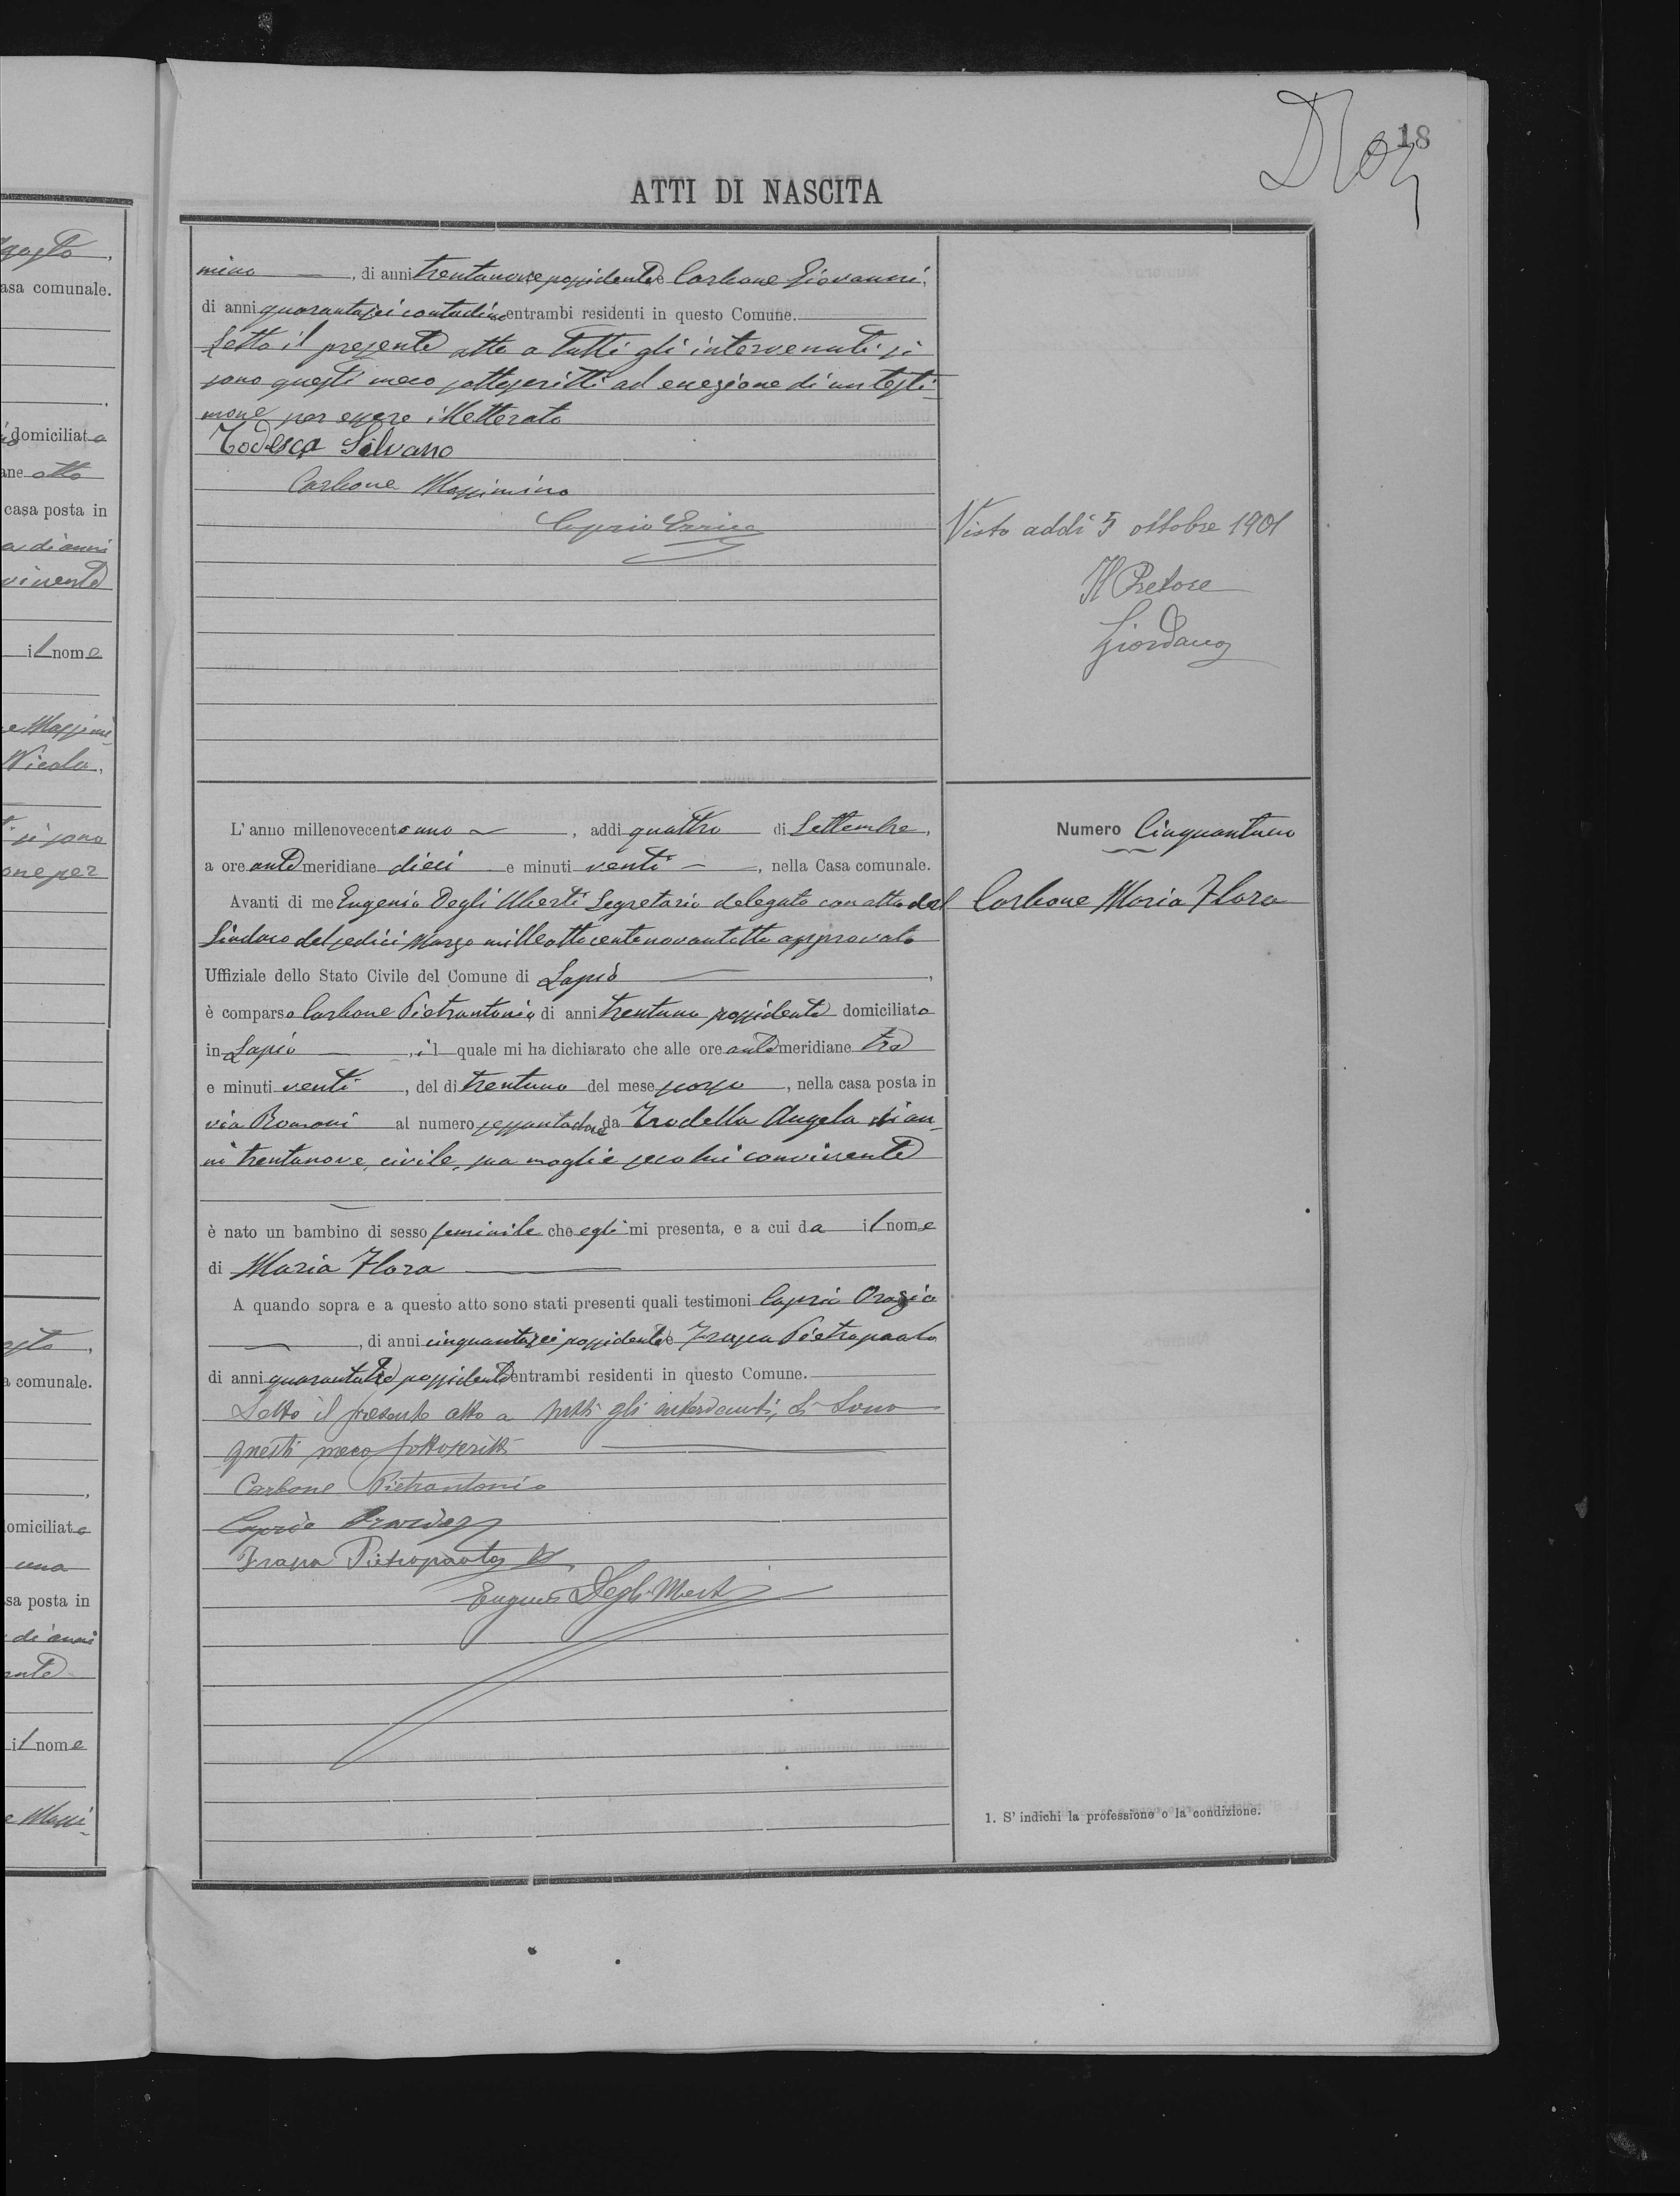 18
ATTI DI NASCITA
mino, di anni trentanove possidente e Carbone Giovanni,
di anni quarantasei contadino entrambi residenti in questo Comune.
Letto il presente atto a tutti gli intervenuti si
sono questi meco sottoscritti ad eccezione di un testi-
mone per essere illetterato
Todesca Silvano
Carbone Massimino
Caprio Errico
Visto addì 5 ottobre 1901
Il Pretore
Giordano
L'anno millenovecento uno, addì quattro di Settembre,
a ore antemeridiane dieci e minuti venti, nella Casa comunale.
Avanti di me Eugenio Degli Uberti Segretario delegato con atto del
Sindaco del sedici Marzo milleottocentonovantotto approvato
Uffiziale dello Stato Civile del Comune di Lapio,
è comparso Carbone Pietrantonio, di anni trentuno possidente domiciliato
in Lapio, il quale mi ha dichiarato che alle ore antemeridiane tre
e minuti venti, del dì trentuno del mese scorso, nella casa posta in
via Romani al numero sessantadue da Trodella Angela di an-
ni trentanove, civile, sua moglie seco lui convivente
è nato un bambino di sesso feminile che egli mi presenta, e a cui da il nome
di Maria Flora
A quando sopra e a questo atto sono stati presenti quali testimoni Caprio Orazio
, di anni cinquantasei possidente e Frasca Pietropaolo
di anni quarantatre possidente entrambi residenti in questo Comune.
Letto il presente atto a tutti gli intervenuti, si sono
questi meco sottoscritti
Carbone Pietrantonio
Caprio Orazio
Pietropaolo
Eugenio Degli Uberti
Numero Cinquantuno
Carbone Maria Flora
1. S'indichi la professione o la condizione.